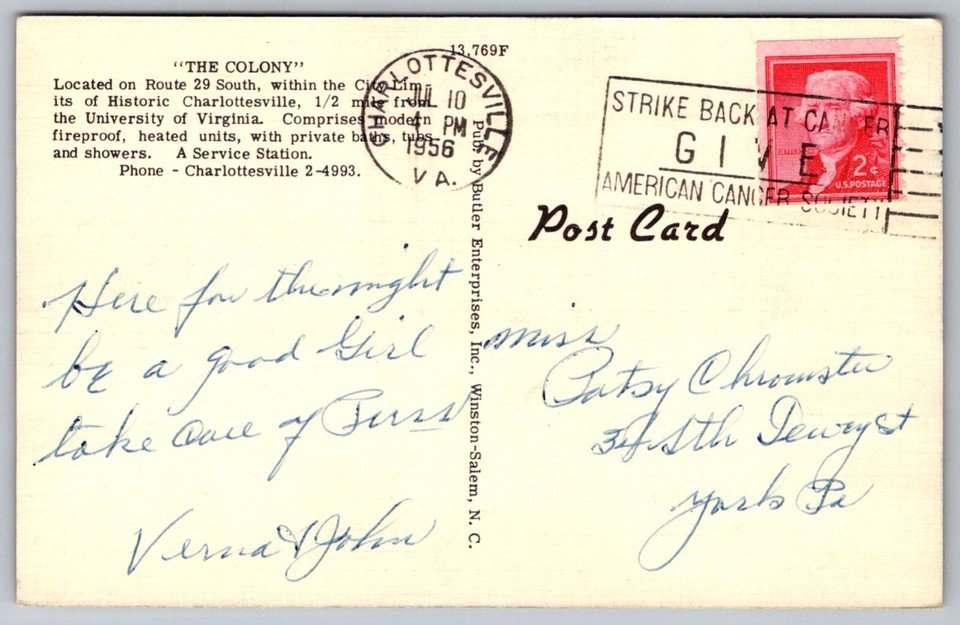 13,769F
"THE COLONY"
Located on Route 29 South, within the City Lim-
its of Historic Charlottesville, 1/2 mile from
the University of Virginia. Comprises modern
fireproof, heated units, with private baths, tubs
and showers. A Service Station.
Phone - Charlottesville 2-4993.
CHARLOTTESVILLE
JUL 10
4 PM
1956
VA.
STRIKE BACK AT CANCER
GIVE
AMERICAN CANCER SOCIETY
2¢
U.S. POSTAGE
Post Card
Pub. by Butler Enterprises, Inc., Winston-Salem, N. C.
Here for the night
be a good Girl
take Care of
Verna & John
miss
Patsy Chronister
Sth Dewey St
York Pa